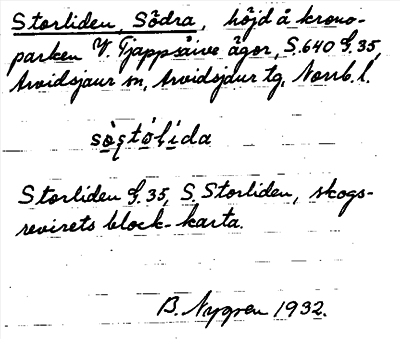 Storliden, Södra, höjd å krono-
parken V. Tjappsåive ägor, S.640 G.35,
Arvidsjaur sn, Arvidsjaur tg, Norrb. l.
Storliden G.35, S. Storliden, skogs-
revirets block-karta.
B. Nygren 1932.